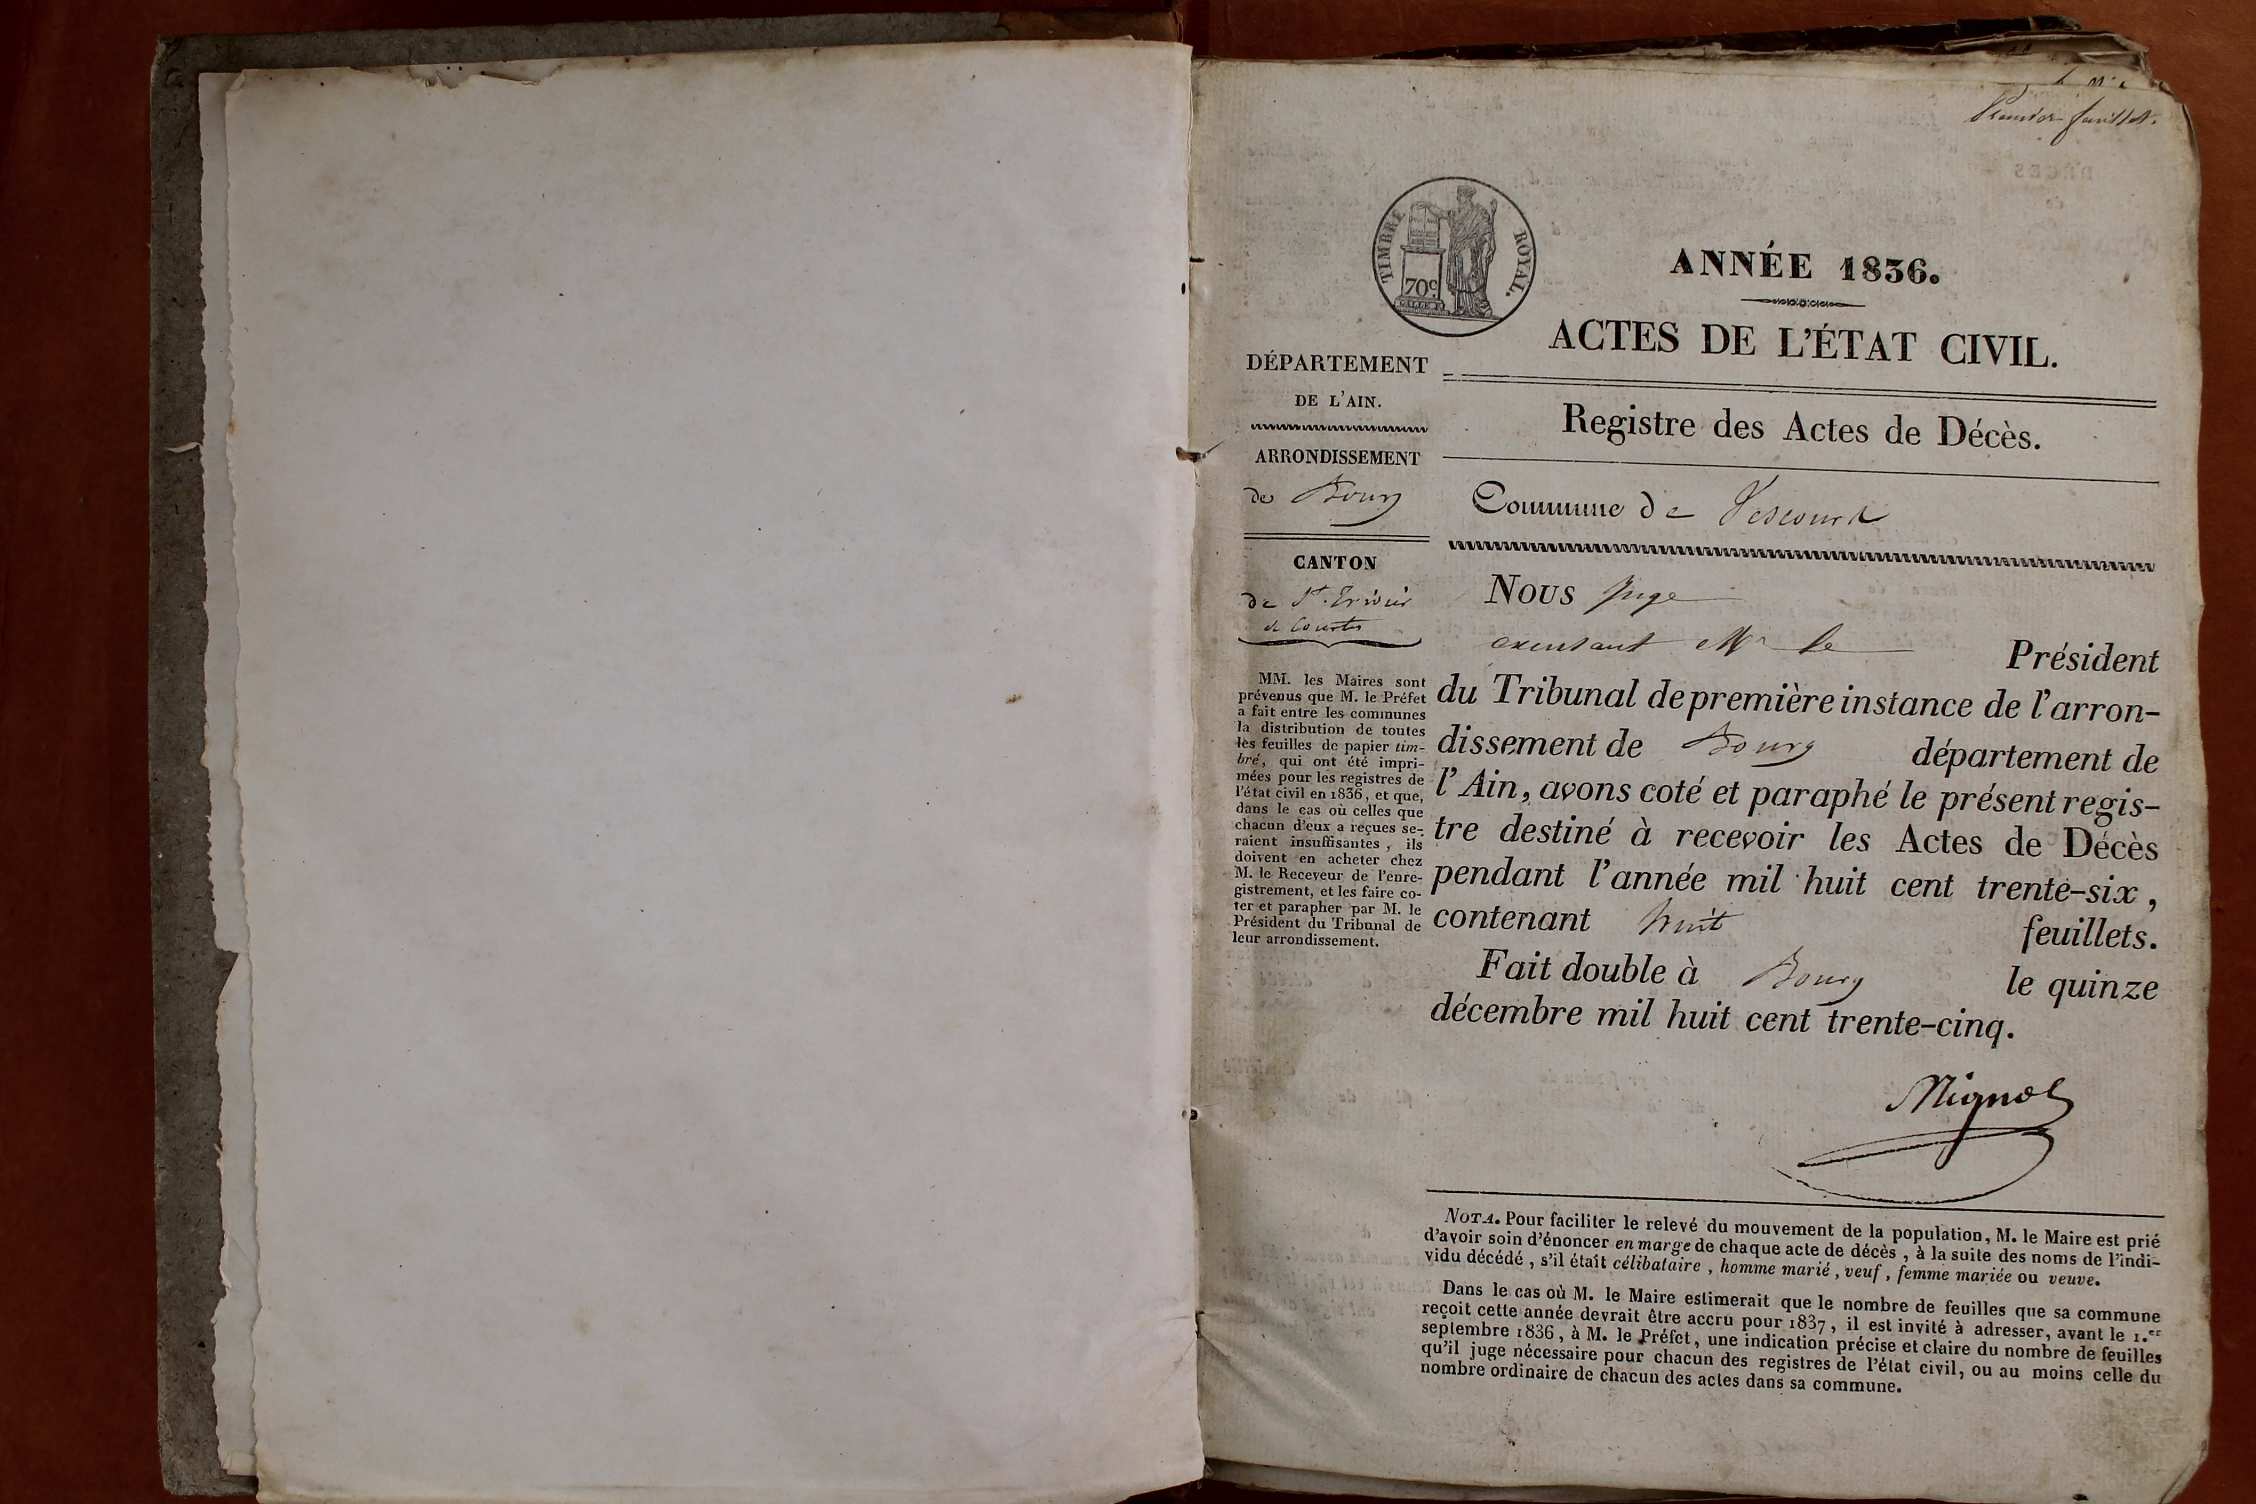 Premier feuillet.
TIMBRE ROYAL.
70c
ANNÉE 1836.
ACTES DE L'ÉTAT CIVIL.
DÉPARTEMENT
DE L'AIN.
ARRONDISSEMENT
de Bourg
CANTON
de St. Trivier
de Courtes
MM. les Maires sont
prévenus que M. le Préfet
a fait entre les communes
la distribution de toutes
les feuilles de papier tim-
bré, qui ont été impri-
mées pour les registres de
l'état civil en 1836, et que,
dans le cas où celles que
chacun d'eux a reçues se-
raient insuffisantes, ils
doivent en acheter chez
M. le Receveur de l'enre-
gistrement, et les faire co-
ter et parapher par M. le
Président du Tribunal de
leur arrondissement.
Registre des Actes de Décès.
Commune de Vescours
Nous Juge
Mr le Président
du Tribunal de première instance de l'arron-
dissement de Bourg département de
l'Ain, avons coté et paraphé le présent regis-
tre destiné à recevoir les Actes de Décès
pendant l'année mil huit cent trente-six,
contenant huit feuillets.
Fait double à Bourg le quinze
décembre mil huit cent trente-cinq.
NOTA. Pour faciliter le relevé du mouvement de la population, M. le Maire est prié
d'avoir soin d'énoncer en marge de chaque acte de décès, à la suite des noms de l'indi-
vidu décédé, s'il était célibataire, homme marié, veuf, femme mariée ou veuve.
Dans le cas où M. le Maire estimerait que le nombre de feuilles que sa commune
reçoit cette année devrait être accru pour 1837, il est invité à adresser, avant le 1.er
septembre 1836, à M. le Préfet, une indication précise et claire du nombre de feuilles
qu'il juge nécessaire pour chacun des registres de l'état civil, ou au moins celle du
nombre ordinaire de chacun des actes dans sa commune.